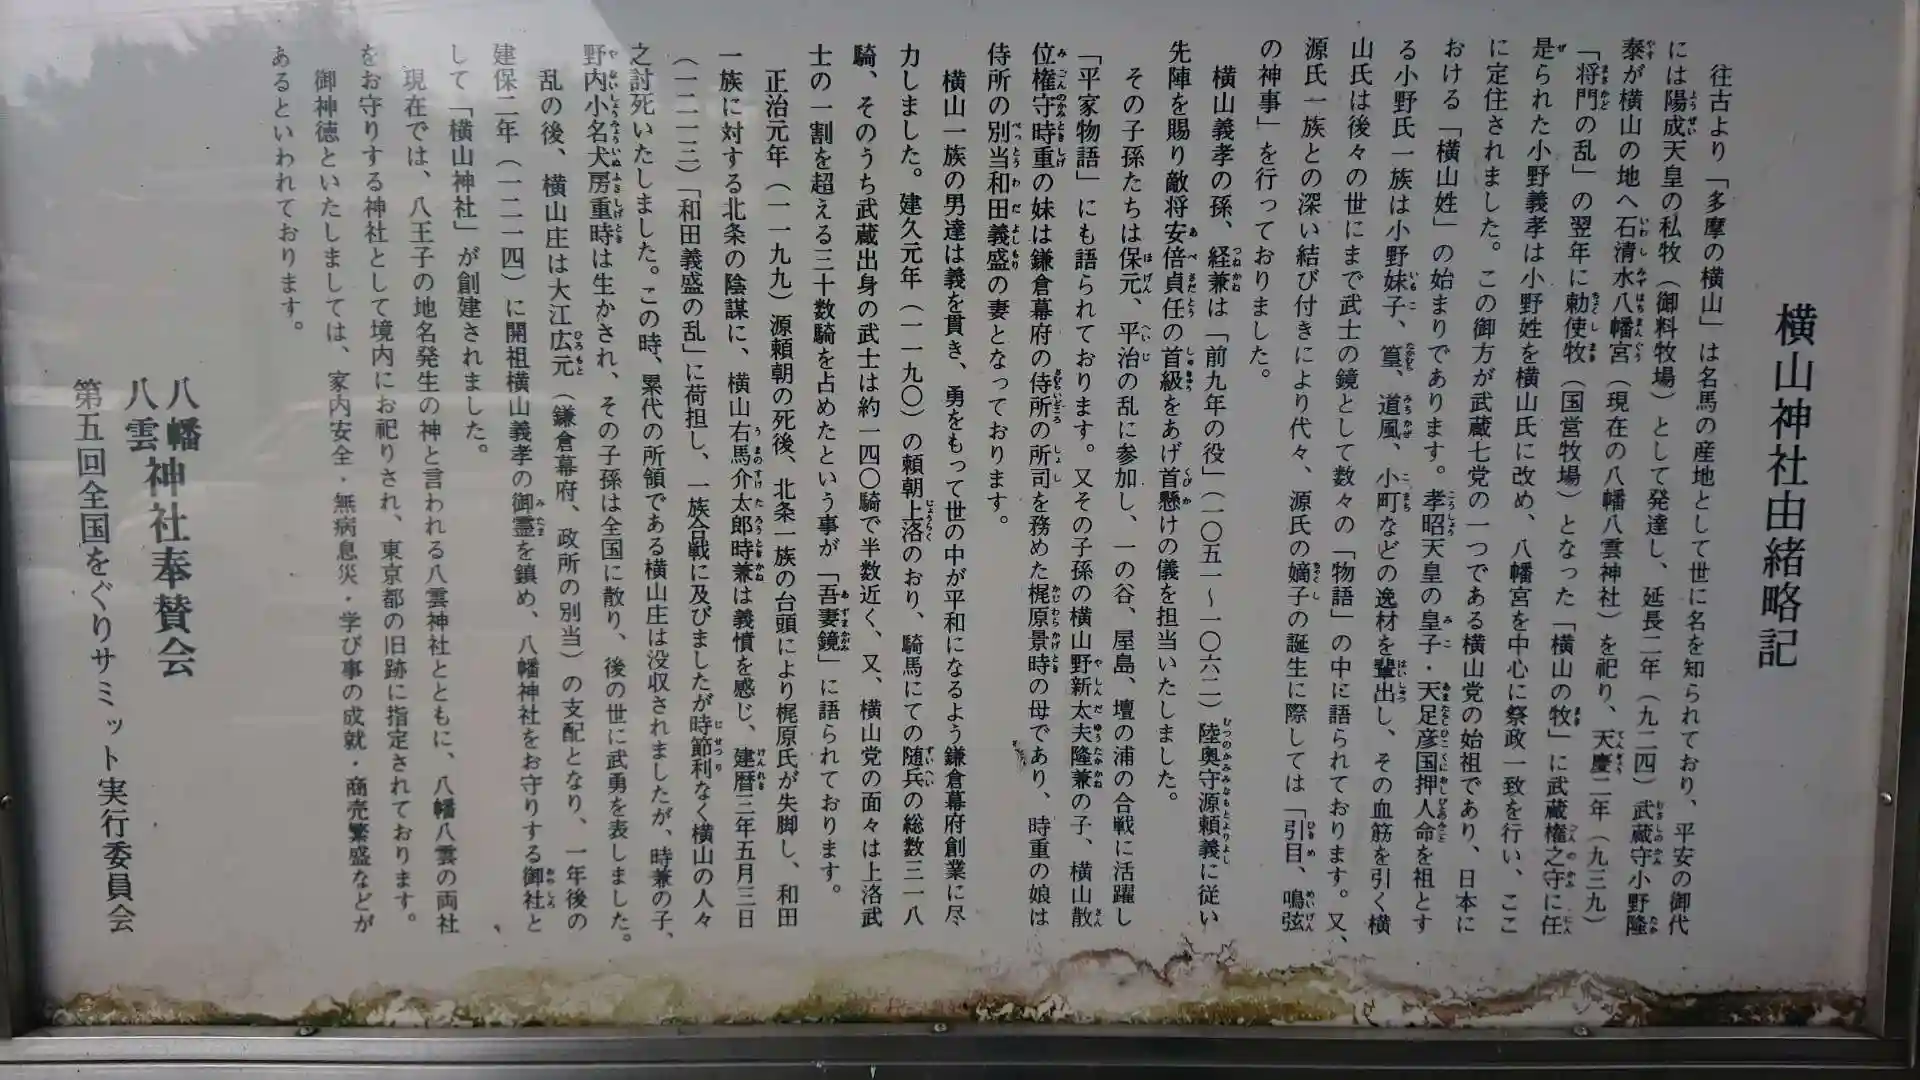 横山神社由緒略記
往古より「多摩の横山」は名馬の産地として世に名を知られており、平安の御代
には陽成天皇の私牧（御料牧場）として発達し、延長二年（九二四）武蔵守小野隆
泰が横山の地へ石清水八幡宮（現在の八幡八雲神社）を祀り、天慶二年（九三九）
「将門の乱」の翌年に勅使牧（国営牧場）となった「横山の牧」に武蔵権之守に任
是られた小野義孝は小野姓を横山氏に改め、八幡宮を中心に祭政一致を行い、ここ
に定住されました。この御方が武蔵七党の一つである横山党の始祖であり、日本に
おける「横山姓」の始まりであります。孝昭天皇の皇子・天足彦国押人命を祖とす
る小野氏一族は小野妹子、篁、道風、小町などの逸材を輩出し、その血筋を引く横
山氏は後々の世にまで武士の鏡として数々の「物語」の中に語られております。又、
源氏一族との深い結び付きにより代々、源氏の嫡子の誕生に際しては「引目、鳴弦
の神事」を行っておりました。
横山義孝の孫、経兼は「前九年の役」（一〇五一～一〇六二）陸奥守源頼義に従い
先陣を賜り敵将安倍貞任の首級をあげ首懸けの儀を担当いたしました。
その子孫たちは保元、平治の乱に参加し、一の谷、屋島、壇の浦の合戦に活躍し
「平家物語」にも語られております。又その子孫の横山野新太夫隆兼の子、横山散
位権守時重の妹は鎌倉幕府の侍所の所司を務めた梶原景時の母であり、時重の娘は
侍所の別当和田義盛の妻となっております。
横山一族の男達は義を貫き、勇をもって世の中が平和になるよう鎌倉幕府創業に尽
力しました。建久元年（一一九〇）の頼朝上洛のおり、騎馬にての随兵の総数三一八
騎、そのうち武蔵出身の武士は約一四〇騎で半数近く、又、横山党の面々は上洛武
士の一割を超える三十数騎を占めたという事が「吾妻鏡」に語られております。
正治元年（一一九九）源頼朝の死後、北条一族の台頭により梶原氏が失脚し、和田
一族に対する北条の陰謀に、横山右馬介太郎時兼は義憤を感じ、建暦三年五月三日
（一二一三）「和田義盛の乱」に荷担し、一族合戦に及びましたが時節利なく横山の人々
之討死いたしました。この時、累代の所領である横山庄は没収されましたが、時兼の子、
野内小名犬房重時は生かされ、その子孫は全国に散り、後の世に武勇を表しました。
乱の後、横山庄は大江広元（鎌倉幕府、政所の別当）の支配となり、一年後の
建保二年（一二一四）に開祖横山義孝の御霊を鎮め、八幡神社をお守りする御社と
して「横山神社」が創建されました。
現在では、八王子の地名発生の神と言われる八雲神社とともに、八幡八雲の両社
をお守りする神社として境内にお祀りされ、東京都の旧跡に指定されております。
御神徳といたしましては、家内安全・無病息災・学び事の成就・商売繁盛などが
あるといわれております。
八幡
八雲 神社奉賛会
第五回全国をぐりサミット実行委員会